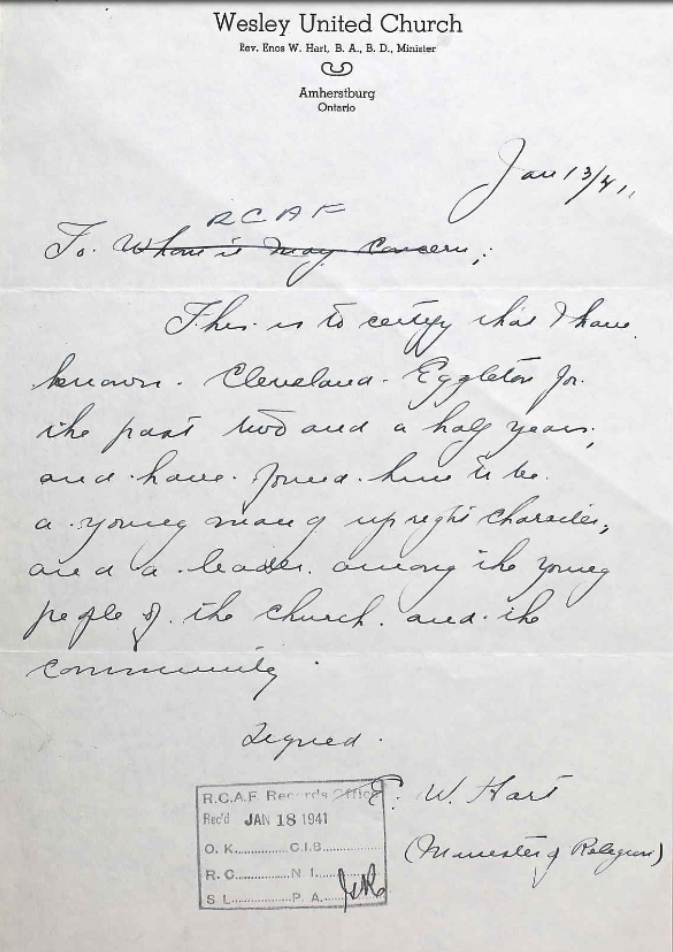 Wesley United Church
Rev. Enos W. Hart, B. A., B. D., Minister
Amherstburg
Ontario
Jan 13/41,
RCAF
To. Whom it may Concern,:
This is to certify that I have
known Cleveland Eggleton for
the past two and a half years,
and have found him to be
a young man of upright character,
and a leader among the young
people of the church and the
community.
Signed.
E. W. Hart
(Minister of Religion)
R.C.A.F. Records Office
Rec'd JAN 18 1941
O. K. C.I.B.
R. C. N. I.
S L P. A.